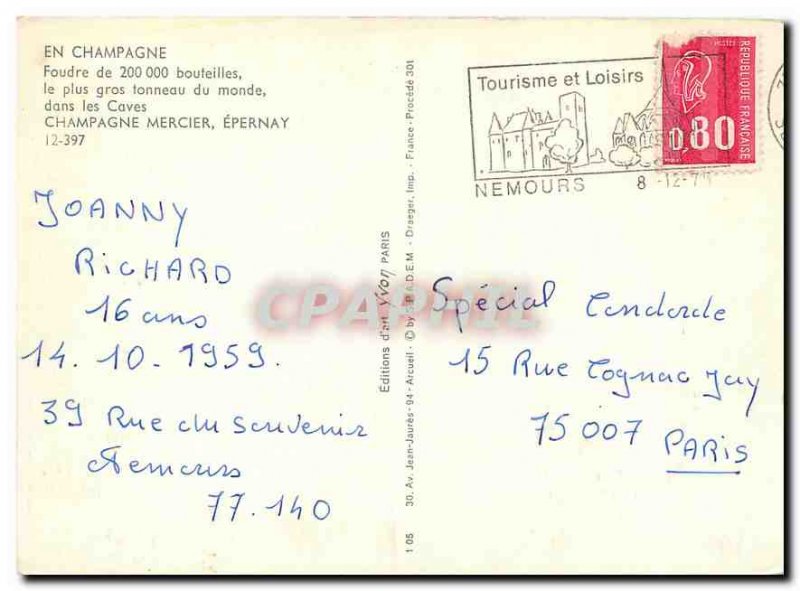 EN CHAMPAGNE
Foudre de 200 000 bouteilles,
le plus gros tonneau du monde,
dans les Caves
CHAMPAGNE MERCIER, ÉPERNAY
12-397
JOANNY
RICHARD
16 ans
14.10.1959.
39 Rue du Souvenir
Nemours
77.140
Éditions d'art yvon PARIS
1 05 30, Av. Jean-Jaurès - 94 - Arcueil - © by S.P.A.D.E.M. - Draeger, Imp. - France - Procédé 301
CPAPHIL
Tourisme et Loisirs
NEMOURS
8 -12-7
REPUBLIQUE FRANCAISE
0,80
Spécial
15 Rue Cognac Jay
75007 PARIS